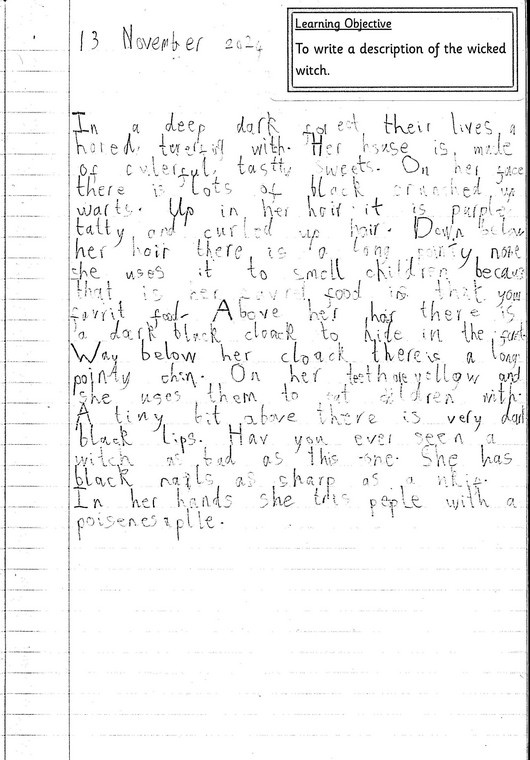 13 November 2024
Learning Objective
To write a description of the wicked
witch.
In a deep dark forest their lives a
hored, tererfil with. Her house is made
of culerful, tastty sweets. On her face
there is lots of black crunched up
warts. Up in her hair it is purple
tatty and curled up hair. Down below
her hair there is a long pointy nose
she uses it to smell children because
that is her favret food is that your
favrit food. Above her hair there is
a dark black cloack to hide in the
Way below her cloack there is a long
pointy chin. On her teeth are yellow and
she uses them to eat children with.
A tiny bit above there is very dark
black lips. Hav you ever seen a
witch as bad as this one. She has
black nails as sharp as a
In her hands she peple with a
poisenes aplle.